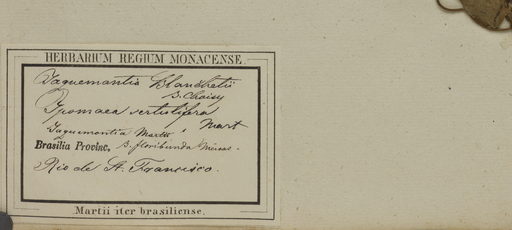 HERBARIUM REGIUM MONACENSE.
Jaquemontia Blanchetii
B. Choisy
Ipomaea sertulifera
Mart
Jaquemontia Martii
Brasilia Provinc, B. floribunda Minas.
Rio de St. Francisco.
Martii iter brasiliense.